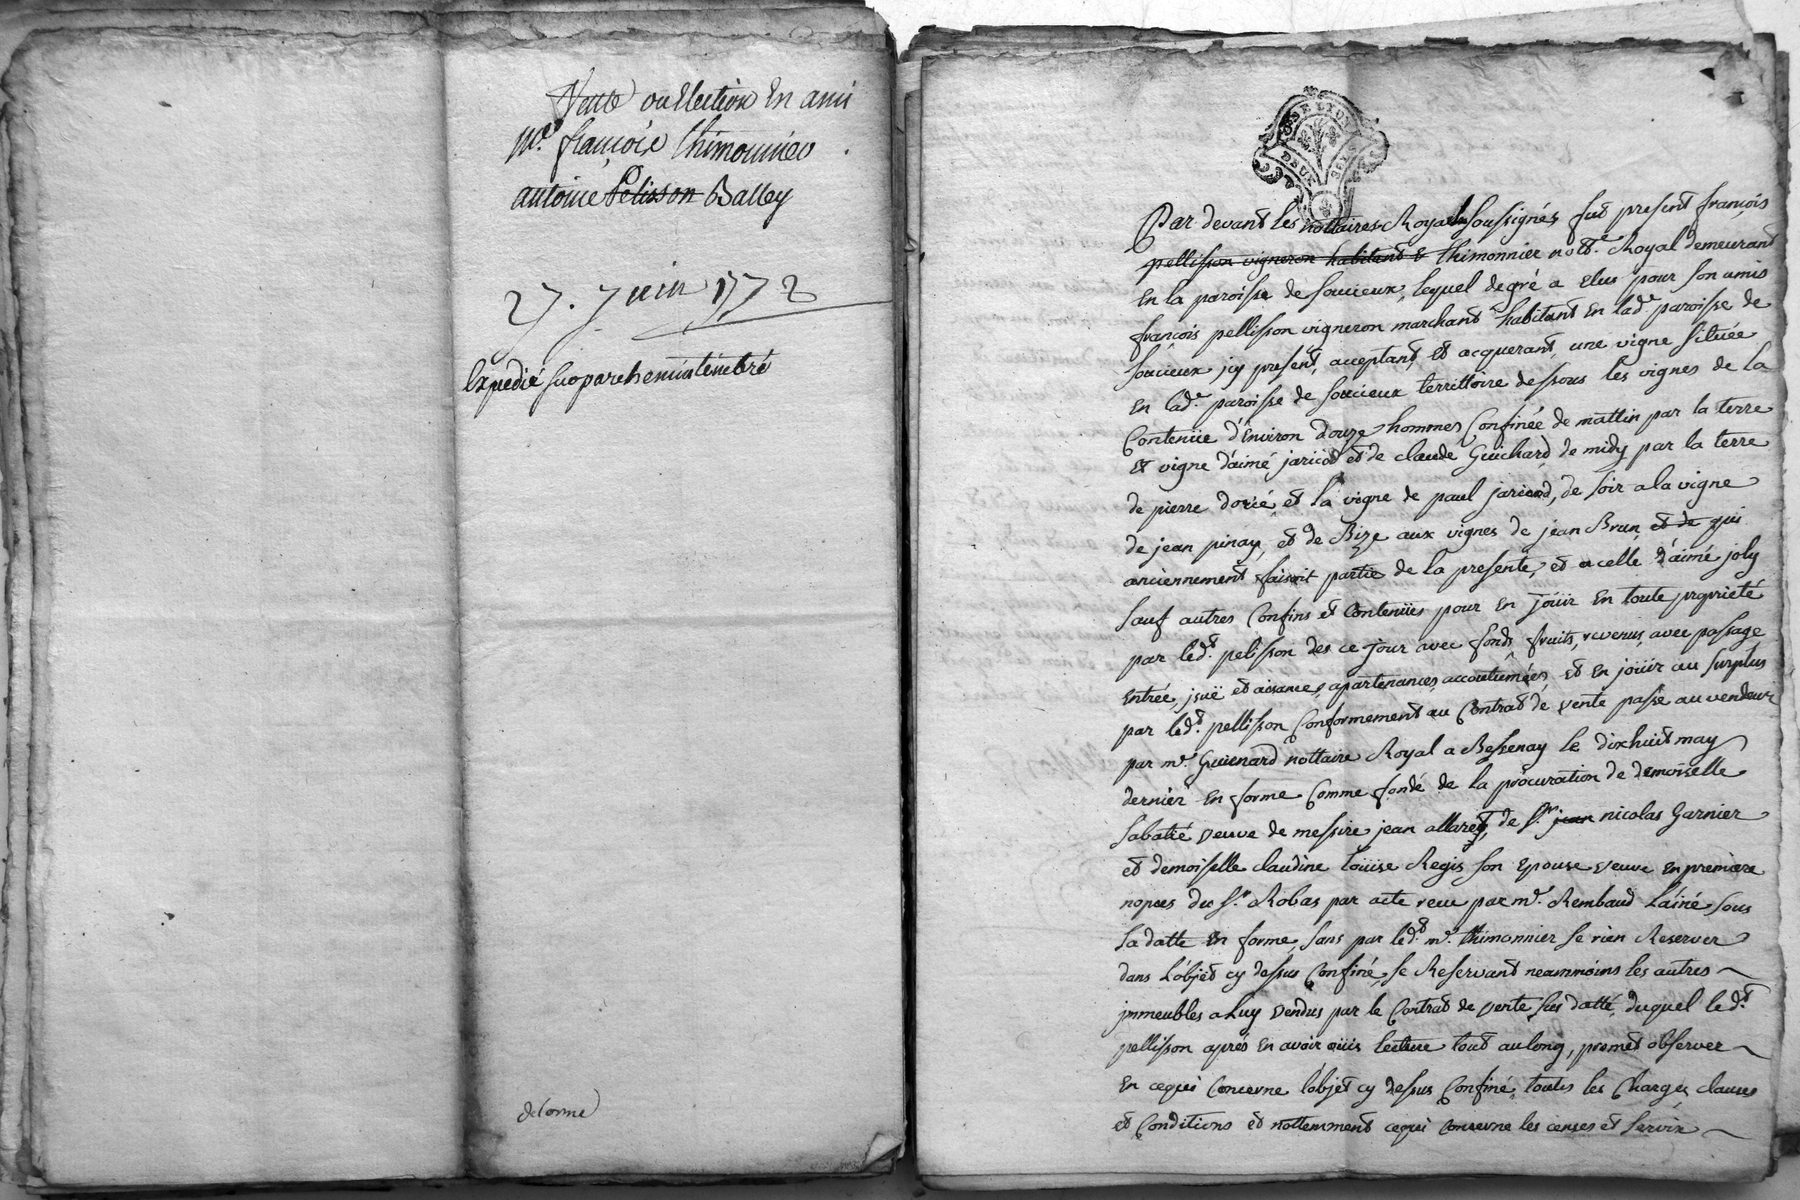 Vente ou Election En ami
Me. françois thimonnier
antoine Pelisson Balley
27. Juin 1772
Expedié sur parchemin timbré
delorme
GNE. LYON
DEUX SOLS
Par devant les nottaires Royaux soussignés fut present françois
pellisson vigneron habitant & thimonnier nott.e Royal demeurant
En la paroisse de soucieux, lequel de gré a Elus pour son amis
françois pellisson vigneron marchant habitant En lad.e paroisse de
soucieux jcy present, acceptant, et acquerant, une vigne située
En lad.e paroisse de soucieux territtoire dessous les vignes de la
Contenüe d'Environ douze hommes Confinée de mattin par la terre
et vigne d'aimé jaricot et de claude Guichard, de midy par la terre
de pierre dorié et la vigne de paul jaricod, de soir a la vigne
de jean pinay, et de Bize aux vignes de jean Brun et de qui
anciennement faisoit partie de la presente, et a celle d'aimé joly
sauf autres Confins et Contenües pour En joüir En toute propriété
par led.t pelisson des ce jour avec fonds, fruits, revenus, avec passage
Entrée, jsuë et aisances, apartenances accoutumées, et En joüir au surplus
par led.t pellisson Conformement au Contrat de vente passé au vendeur
par me. Guienard nottaire Royal a Bessenay le dixhuit may
dernier En forme Comme fondé de la procuration de demoiselle
sabatié veuve de messire jean allaret, de sr. jean nicolas Garnier
et demoiselle claudine loüise Regis son Epouse veuve En premiere
nopces du sr. Robas par acte reçu par me. Rembaud L'áiné sous
sa datte En forme, sans par led.t me. thimonnier se rien Reserver
dans L'objet cy dessus Confiné, se Reservant neammoins les autres
jmmeubles a Luy vendus par le Contrat de vente sus datté, duquel led.t
pellisson aprés En avoir oüis lecture tout au long, promet observer
En ce qui Concerne l'objet cy dessus Confiné, toutes les Charges clauses
et Conditions et nottemment ce qui Concerne les censes et servix